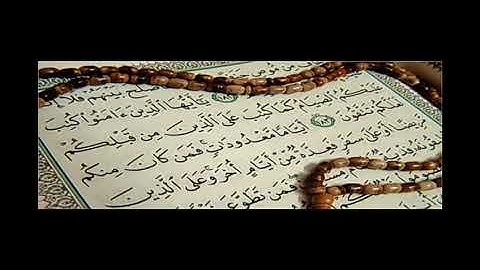 مِن مُّوصٍ بَيْنَهُمْ فَلَا
١٨٢ يَٰٓأَيُّهَا ٱلَّذِينَ ءَامَنُوا۟ كُتِبَ
عَلَيْكُمُ ٱلصِّيَامُ كَمَا كُتِبَ عَلَى ٱلَّذِينَ مِن قَبْلِكُمْ
لَعَلَّكُمْ تَتَّقُونَ ١٨٣ أَيَّامًا مَّعْدُودَٰتٍ فَمَن كَانَ مِنكُم
مَّرِيضًا أَوْ عَلَىٰ سَفَرٍ فَعِدَّةٌ مِّنْ أَيَّامٍ أُخَرَ وَعَلَى ٱلَّذِينَ
فَمَن تَطَوَّعَ